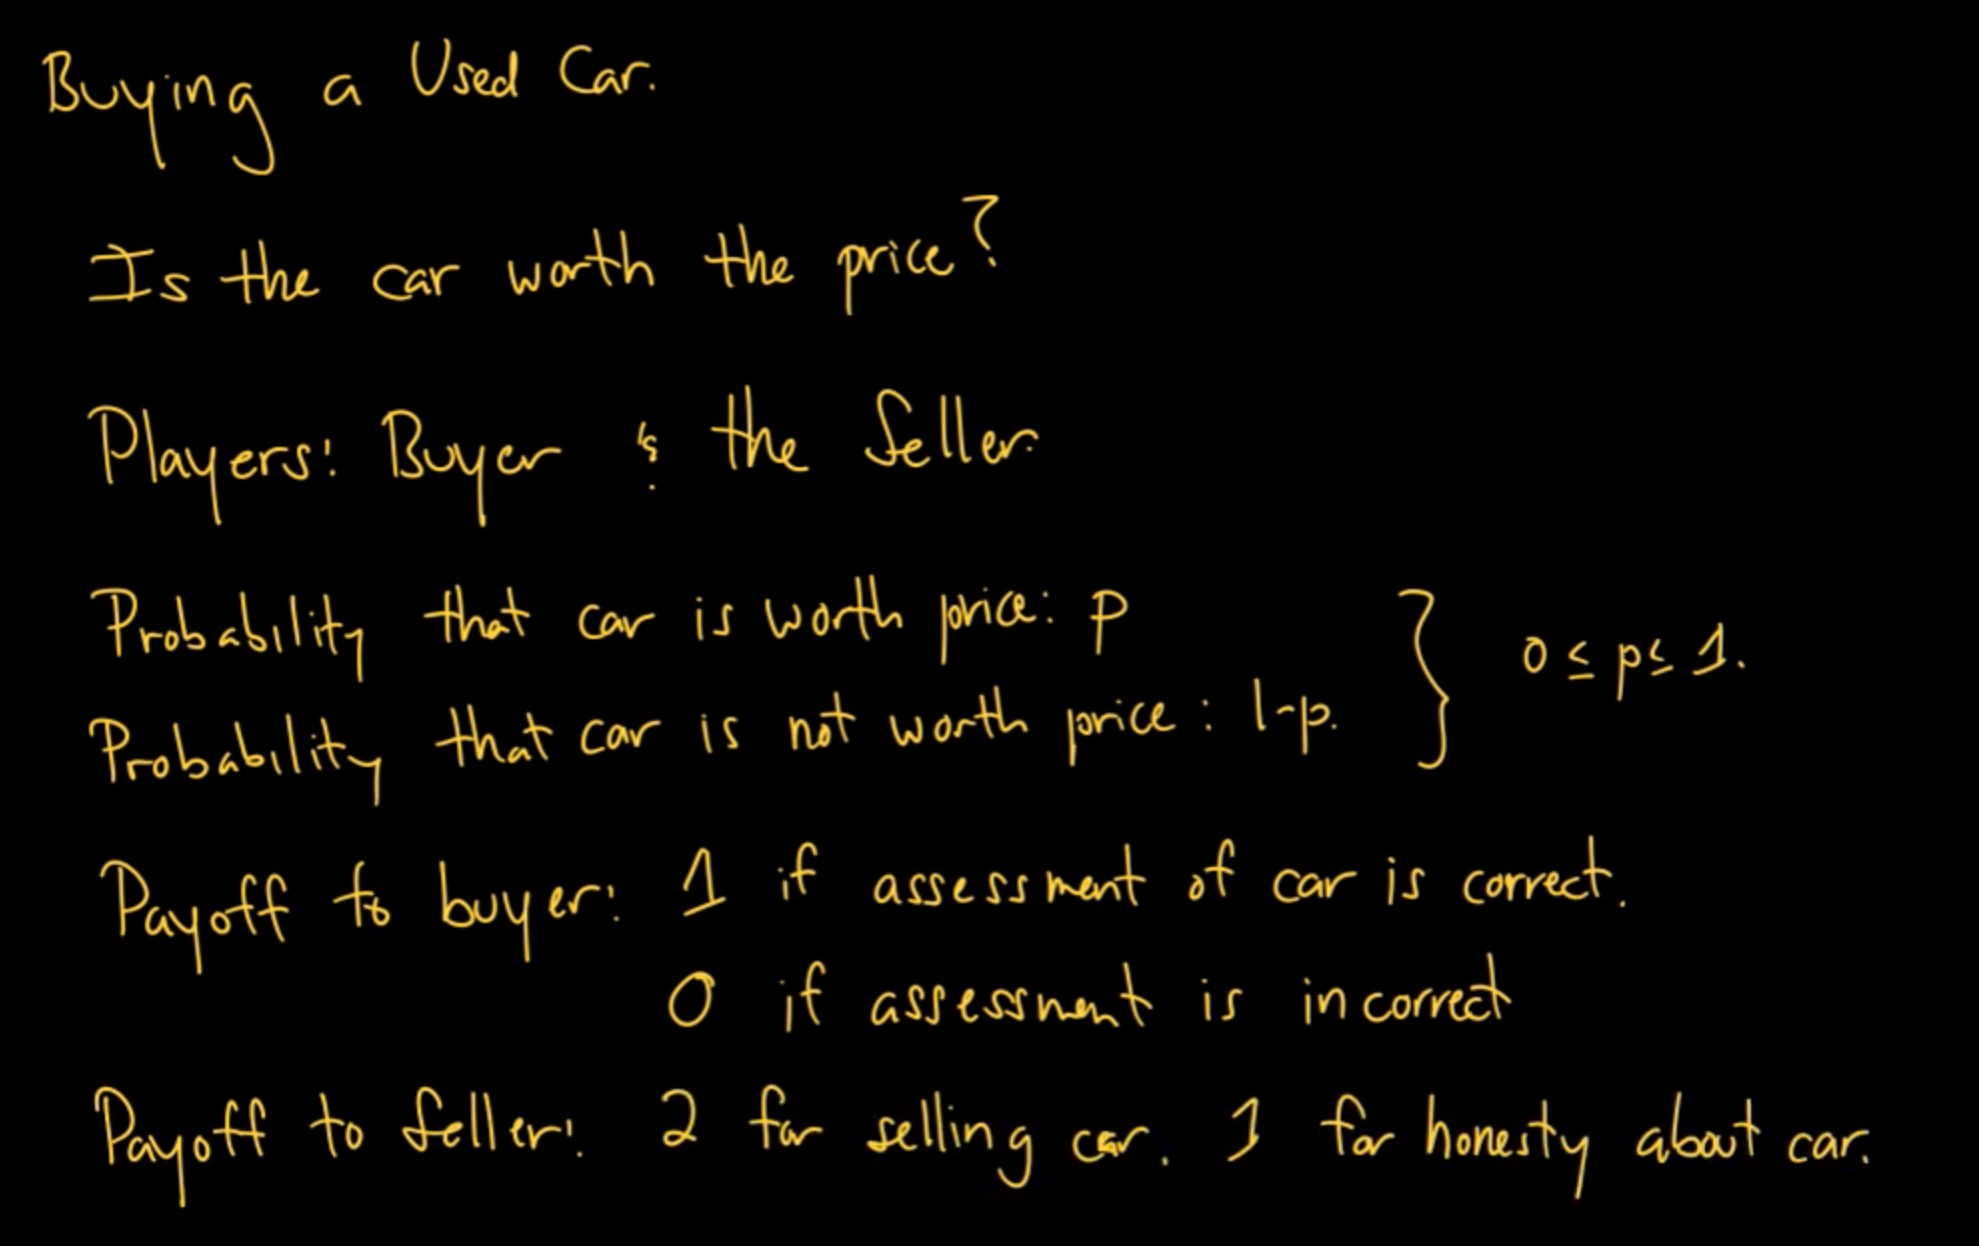 Buying a Used Car.
Is the car worth the price?
Players: Buyer & the Seller.
Probability that car is worth price: p
Probability that car is not worth price: 1-p. } 0 ≤ p ≤ 1.
Payoff to buyer: 1 if assessment of car is correct.
0 if assessment is incorrect
Payoff to Seller: 2 for selling car. 1 for honesty about car.